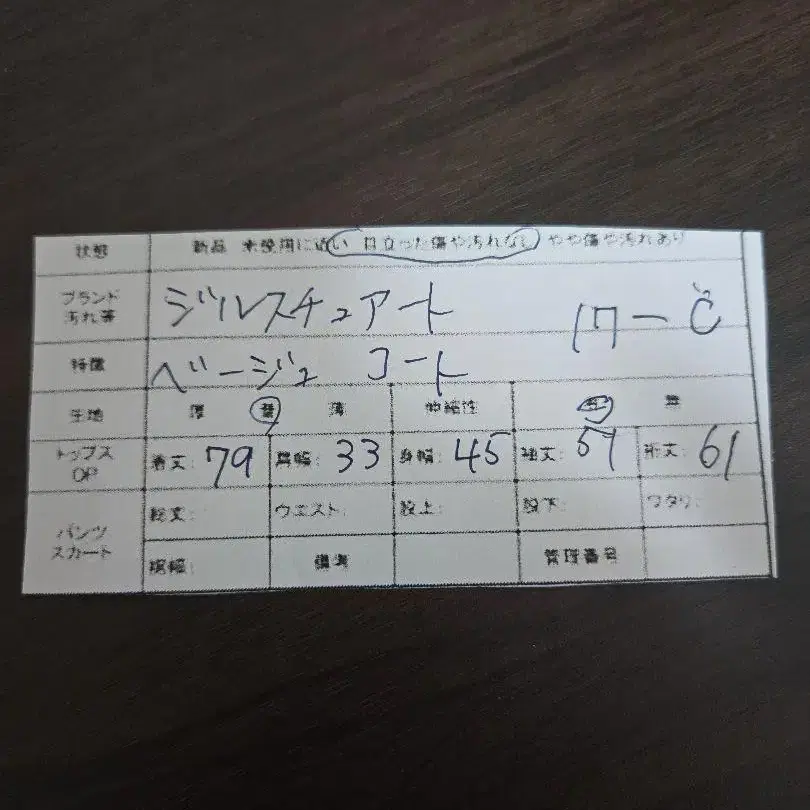 状態 新品 未使用に近い 目立った傷や汚れなし やや傷や汚れあり
ブランド 汚れ等 ジルスチュアート
特徴 ベージュ コート
生地 厚 普 薄 伸縮性 有 無
トップス OP 着丈: 79 肩幅: 33 身幅: 45 袖丈: 裄丈: 61
パンツ スカート 総丈: ウエスト: 股上: 股下: ワタリ:
裾幅: 備考 管理番号